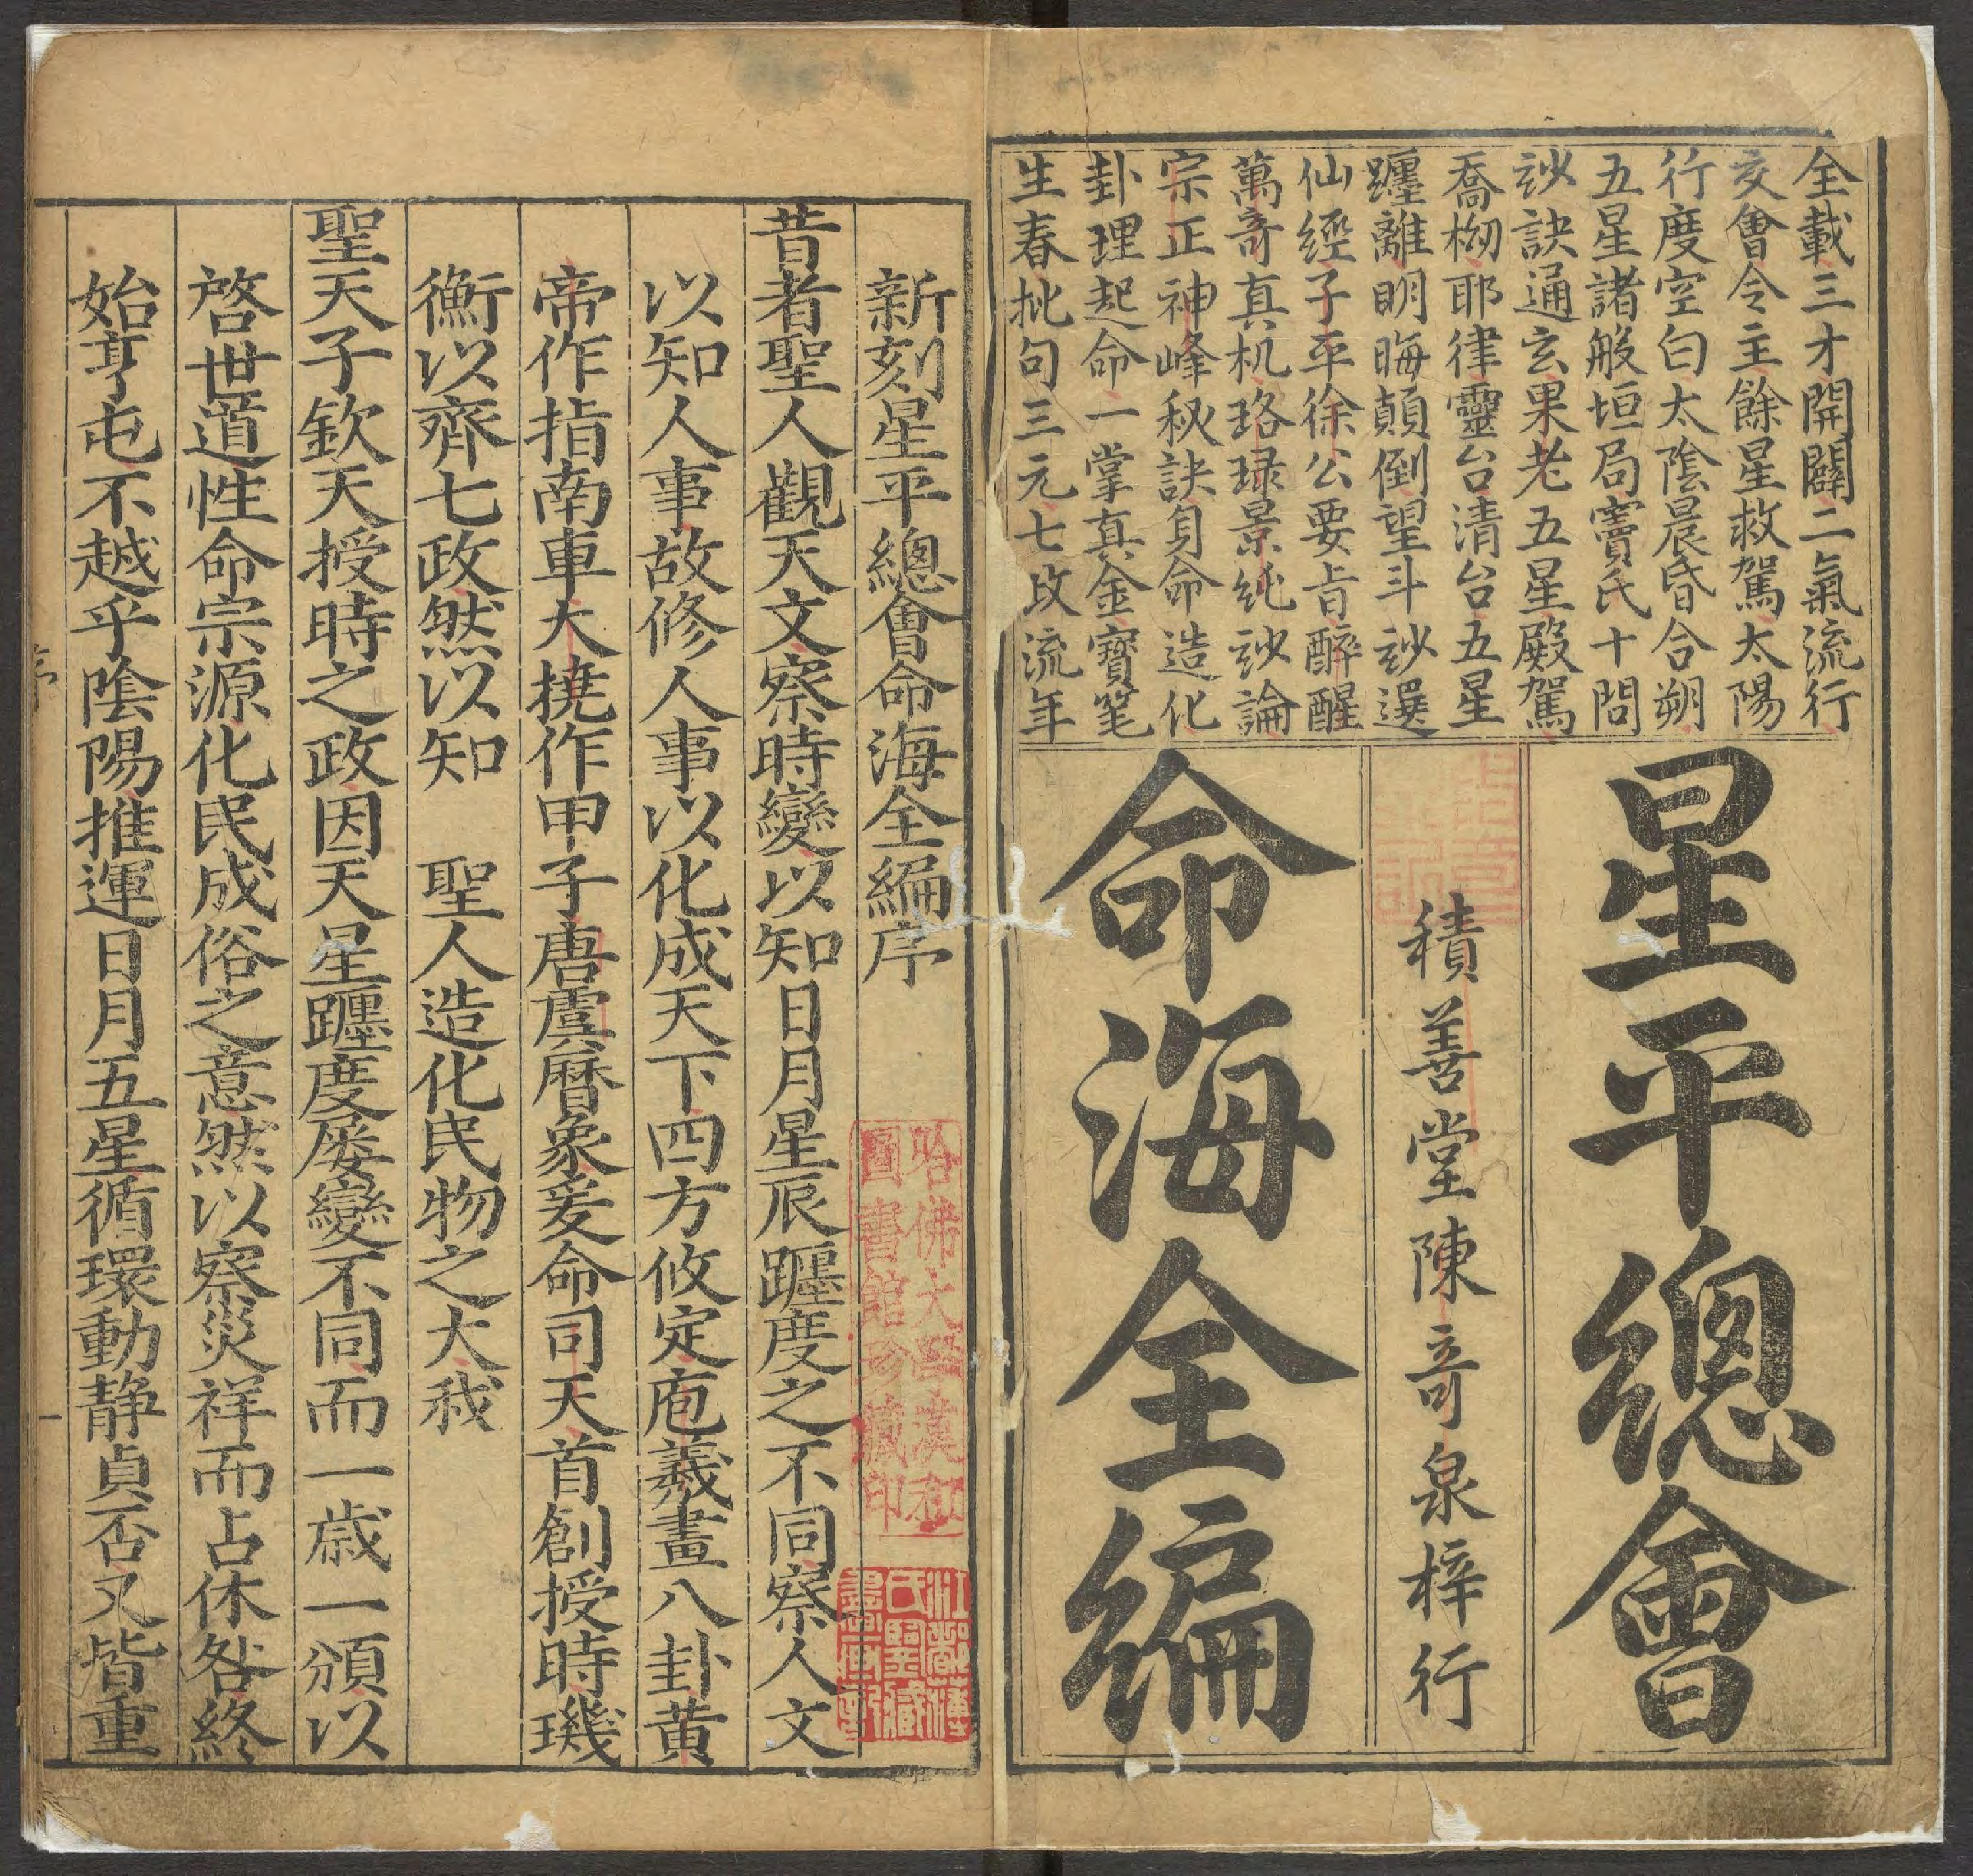 全載三才開闢二氣流行
交會令主餘星救駕太陽
行度空白太陰晨昏合朔
五星諸般垣局竇氏十問
玅訣通玄果老五星殿駕
喬拗耶律靈台清台五星
躔離明晦顛倒望斗玅選
仙經子平徐公要旨醉醒
萬竒真机珞琭景純玅論
宗正神峰秘訣貟命造化
卦理起命一掌真金寶笔
生春批句三元七政流年
星平總會
積善堂陳竒泉梓行
命海全編
新刻星平總會命海全編序
昔者聖人觀天文察時變以知日月星辰躔度之不同察人文
以知人事故修人事以化成天下四方攸定庖羲畫八卦黃
帝作指南車大撓作甲子唐虞曆象爰命司天首創授時璣
衡以齊七政然以知　聖人造化民物之大我
聖天子欽天授時之政因天星躔度屡變不同而一歲一頒以
啓世道性命宗源化民成俗之意然以察災祥而占休咎終
始亨屯不越乎陰陽推運日月五星循環動静貞否又皆重
哈佛大學漢和
圖書館珍藏印
序
一